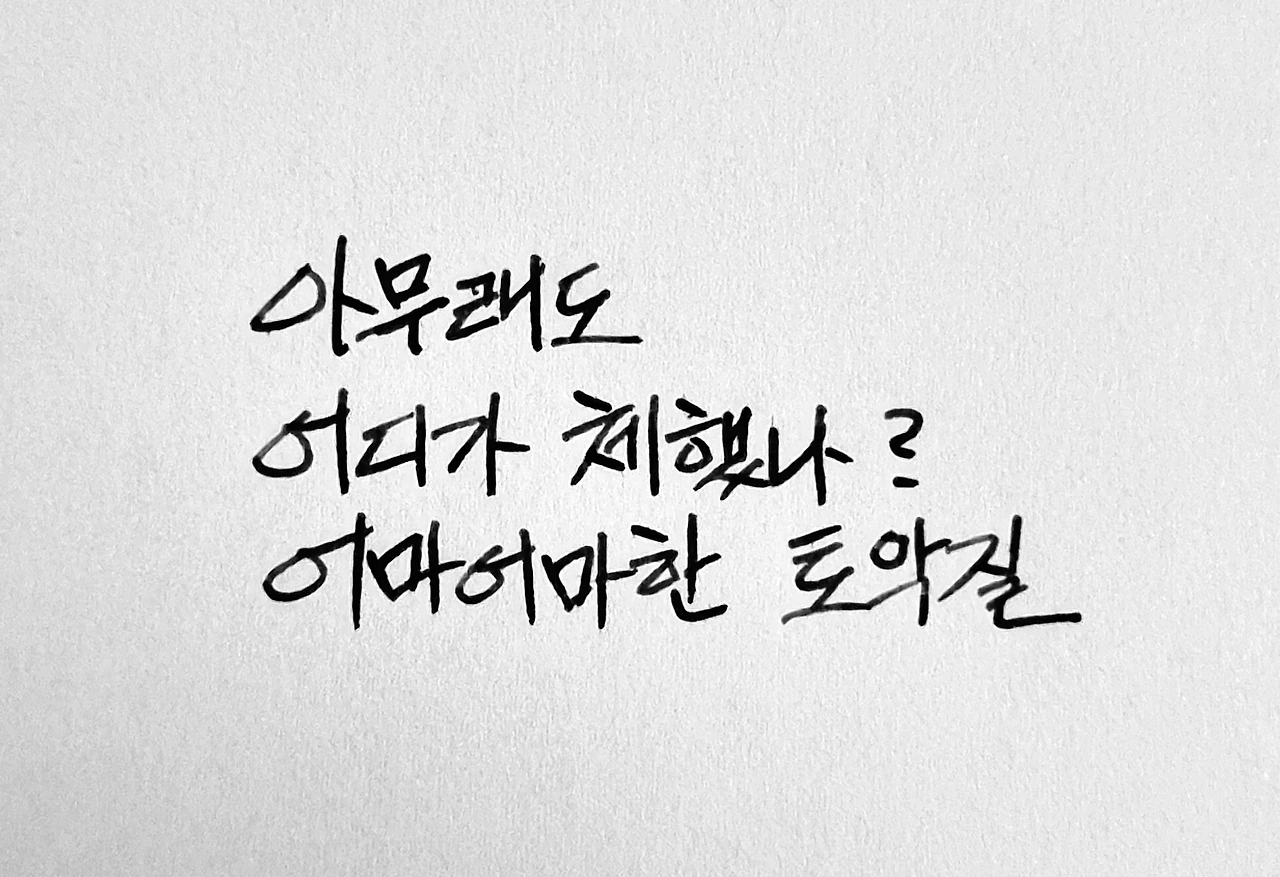 아무래도
어디가 체했나?
어마어마한 토악질